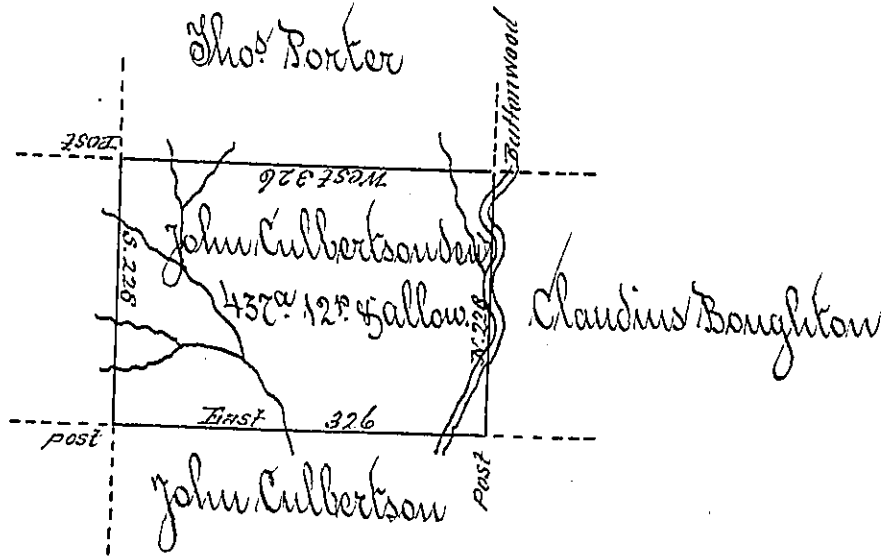 Thos. Porter
Buttonwood
Post
West 326
S. 228
John Culbertson Senr.
437a. 12p. & allow.
N. 228
Claudius Boughton
East 326
Post
Post
John Culbertson